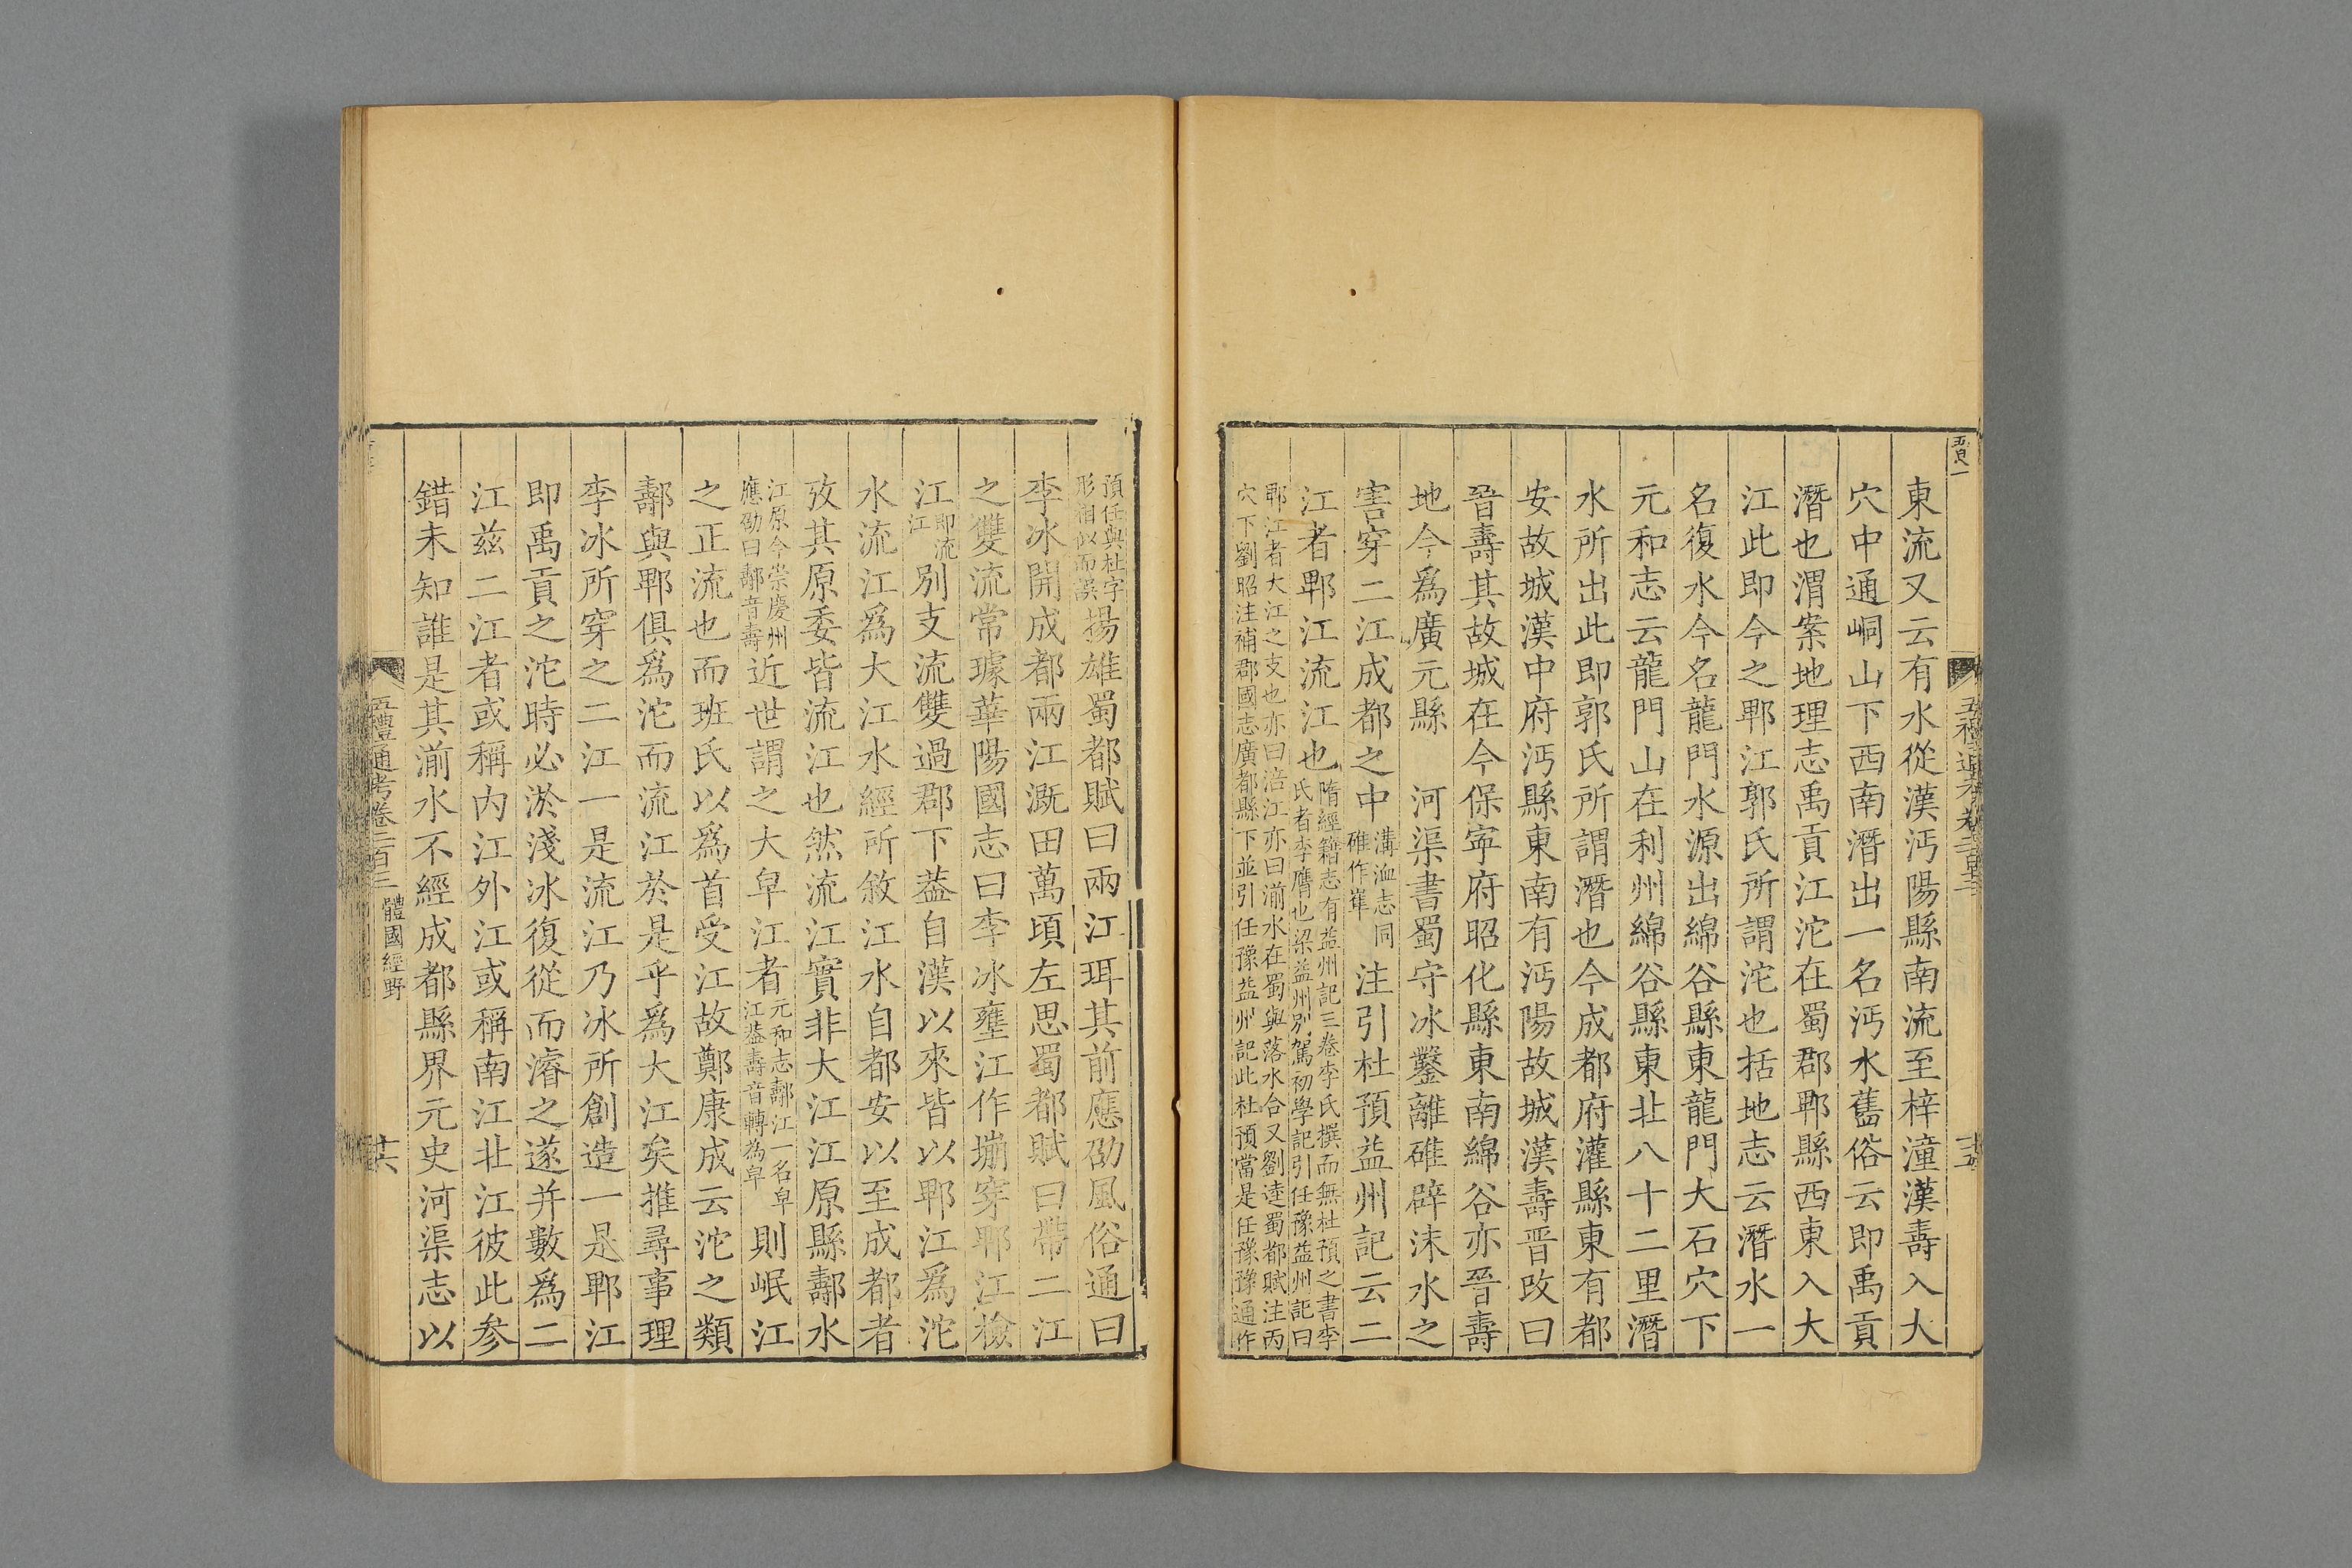 東流又云有水從漢沔陽縣南流至梓潼漢壽入大
穴中通峒山下西南潛出一名沔水舊俗云即禹貢
潛也渭案地理志禹貢江沱在蜀郡郫縣西東入大
江此即今之郫江郭氏所謂沱也括地志云潛水一
名復水今名龍門水源出綿谷縣東龍門大石穴下
元和志云龍門山在利州綿谷縣東北八十二里潛
水所出此即郭氏所謂潛也今成都府灌縣東有都
安故城漢中府沔縣東南有沔陽故城漢壽晉改曰
晉壽其故城在今保寧府昭化縣東南綿谷亦晉壽
地今爲廣元縣 河渠書蜀守冰鑿離碓辟沫水之
害穿二江成都之中溝洫志同
碓作𡹐注引杜預益州記云二
江者郫江流江也隋經籍志有益州記三卷李氏撰而無杜預之書李
氏者李膺也梁益州別駕初學記引任豫益州記曰
郫江者大江之支也亦曰涪江亦曰湔水在蜀與落水合又劉逵蜀都賦注丙
穴下劉昭注補郡國志廣都縣下並引任豫益州記此杜預當是任豫豫通作
預任與杜字
形相似而誤揚雄蜀都賦曰兩江珥其前應劭風俗通曰
李冰開成都兩江溉田萬頃左思蜀都賦曰帶二江
之雙流常璩華陽國志曰李冰壅江作堋穿郫江檢
江即流
江別支流雙過郡下葢自漢以來皆以郫江爲沱
水流江爲大江水經所敘江水自都安以至成都者
攷其原委皆流江也然流江實非大江江原縣䣝水
江原今崇慶州
應劭曰䣝音壽近世謂之大皁江者元和志䣝江一名皁
江葢壽音轉為皁則岷江
之正流也而班氏以爲首受江故鄭康成云沱之類
䣝與郫俱爲沱而流江於是乎爲大江矣推尋事理
李冰所穿之二江一是流江乃冰所創造一是郫江
即禹貢之沱時必淤淺冰復從而濬之遂并數爲二
江兹二江者或稱內江外江或稱南江北江彼此參
錯未知誰是其湔水不經成都縣界元史河渠志以
五禮通考卷二百二 體國經野